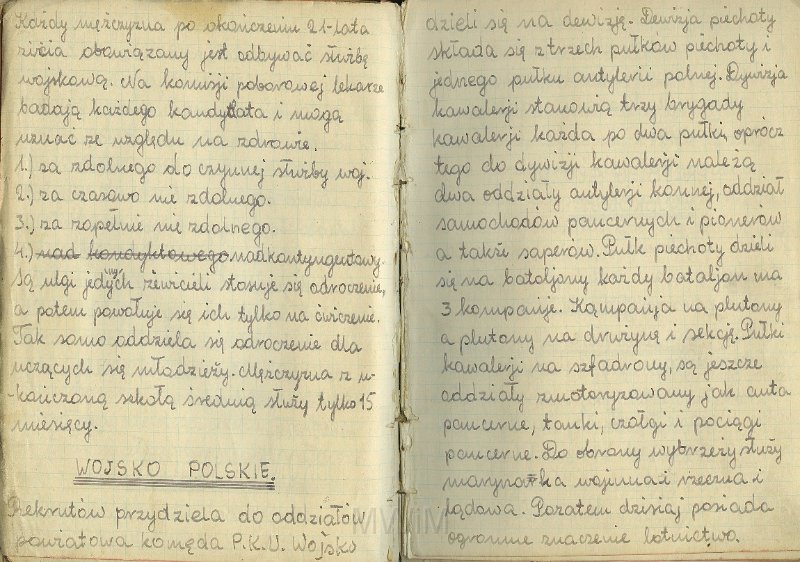 Każdy mężczyzna po okończeniu 21-lata
życia obowiązany jest odbywać służbę
wojskową. Na komisji poborowej lekarze
badają każdego kandydata i mogą
uznać ze względu na zdrowie.
1.) za zdolnego do czynnej służby woj.
2.) za czasowo nie zdolnego.
3.) za zupełnie nie zdolnego.
4.) nad kondyktowego nadkontyngentowy.
Są ulgi jedynych żewicieli stosuje się odroczenie,
a potem powołuje się ich tylko na ćwiczenie.
Tak samo oddziela się odroczenie dla
uczących się młodzieży. Mężczyzna z u-
-kończoną szkołą średnią służy tylko 15
miesięcy.
WOJSKO POLSKIE.
Rekrutów przydziela do oddziałów
powiatowa komęda P.K.U. Wojsko
dzieli się na dewizję. Dewizja piechoty
składa się z trzech pułków piechoty i
jednego pułku artylerii polnej. Dywizja
kawalerji stanowią trzy brygady
kawalerji każda po dwa pułki, oprócz
tego do dywizji kawalerji należą
dwa oddziały artylerji konnej, oddział
samochodów pancernych i pionerów
a także saperów. Pułk piechoty dzieli
się na bataljony każdy bataljon ma
3 kompanije. Kampanija na plutony
a plutony na drużynę i sekcję. Pułki
kawalerji na szfadrony, są jeszcze
oddziały zmotoryzowany jak auta
pancerne, tanki, czołgi i pociągi
pancerne. Do obrony wybrzeży służy
marynarka wojenna i rzeczna i
lądowa. Pozatem dzisiaj posiada
ogromne znaczenie lotnictwo.